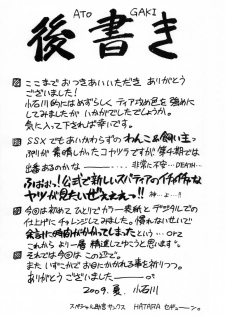 ATO GAKI
後書き
ここまでおつきあいいただき ありがとう
ございました!
小石川的にはめずらしく ディア攻め色を強めに
してみましたが いかがでしたでしょうか。
気に入って下されば幸いです。
SSXでもあいかわらずの わんこ&飼い主っ
ぷりが素晴しかったコカツラですが 第4期では
出番あるのかな ー ... 非常に不安…DEATH…
公式で新しいスパディアのイチャイチャな
ヤツが見たいぜぇぇぇっ!!
今回は初めて ひとりでカラー表紙と デジタルでの
仕上げに チャレンジしてみました。慣れないせいで
余計に時間がかかってしまった という…orz
これから より一層 精進してゆこうと思います。
それでは今回は この辺で。
また いずこかで お目にかかれる事を祈りつつ。
ありがとう ございました
2009. 夏. 小石川
スペシャル助言サンクス HATARA